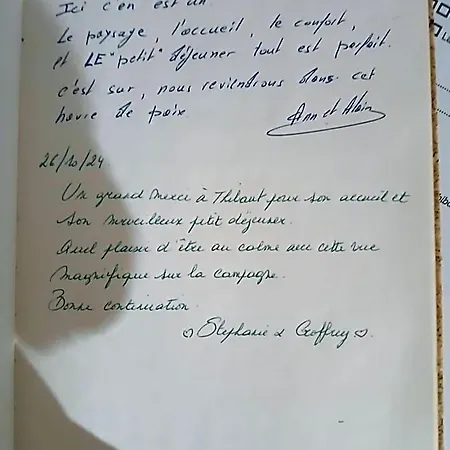 Ici c'en est un.
Le paysage, l'accueil, le confort,
et LE "petit" déjeuner tout est parfait.
c'est sur, nous reviendrons dans cet
havre de paix
Ann et Alain
26/10/24
Un grand merci à Thibaut pour son accueil et
son merveilleux petit déjeuner.
Quel plaisir d'être au calme avec cette vue
magnifique sur la campagne.
Bonne continuation.
♡ Stéphanie & Geoffrey ♡.